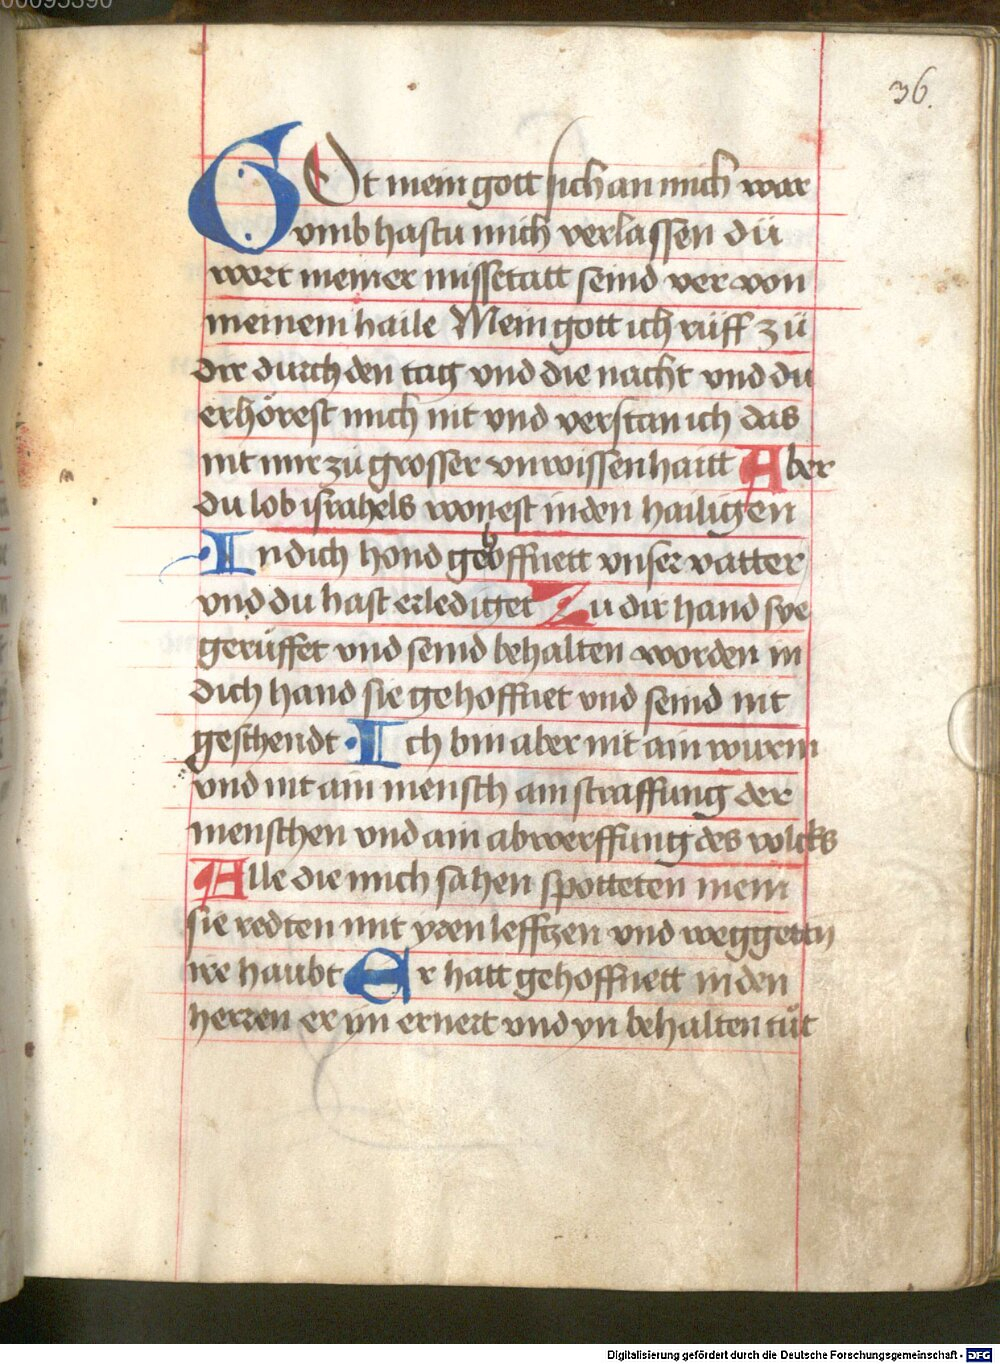 00095390
36.
GOt mein gott sich an mich war
vmb hastu mich verlassen dü
wort meiner missetatt seind ver von
meinem haile Mein gott ich rüff zü
dir durch den tag vnd die nacht vnd du
erhörest mich nit vnd verstan ich das
nit mir zü grosser vnwissenhaitt Aber
du lob israhels wonest in den hailigen
In dich hond gehoffnett vnser vatter
vnd du hast erlediget Zu dir hand sye
gerüffet vnd seind behalten worden in
dich hand sie gehoffnet vnd seind nit
geschendt Ich bin aber nit ain wurm
vnd nit ain mensch ain straffung der
menschen vnd ain abwerffung des volcks
Alle die mich sahen spotteten mein
sie redten mit yren leffczen vnd weggettn
ire haubt Er hatt gehoffnett in den
herren er yn ernert vnd yn behalten tůt
Digitalisierung gefördert durch die Deutsche Forschungsgemeinschaft - DFG